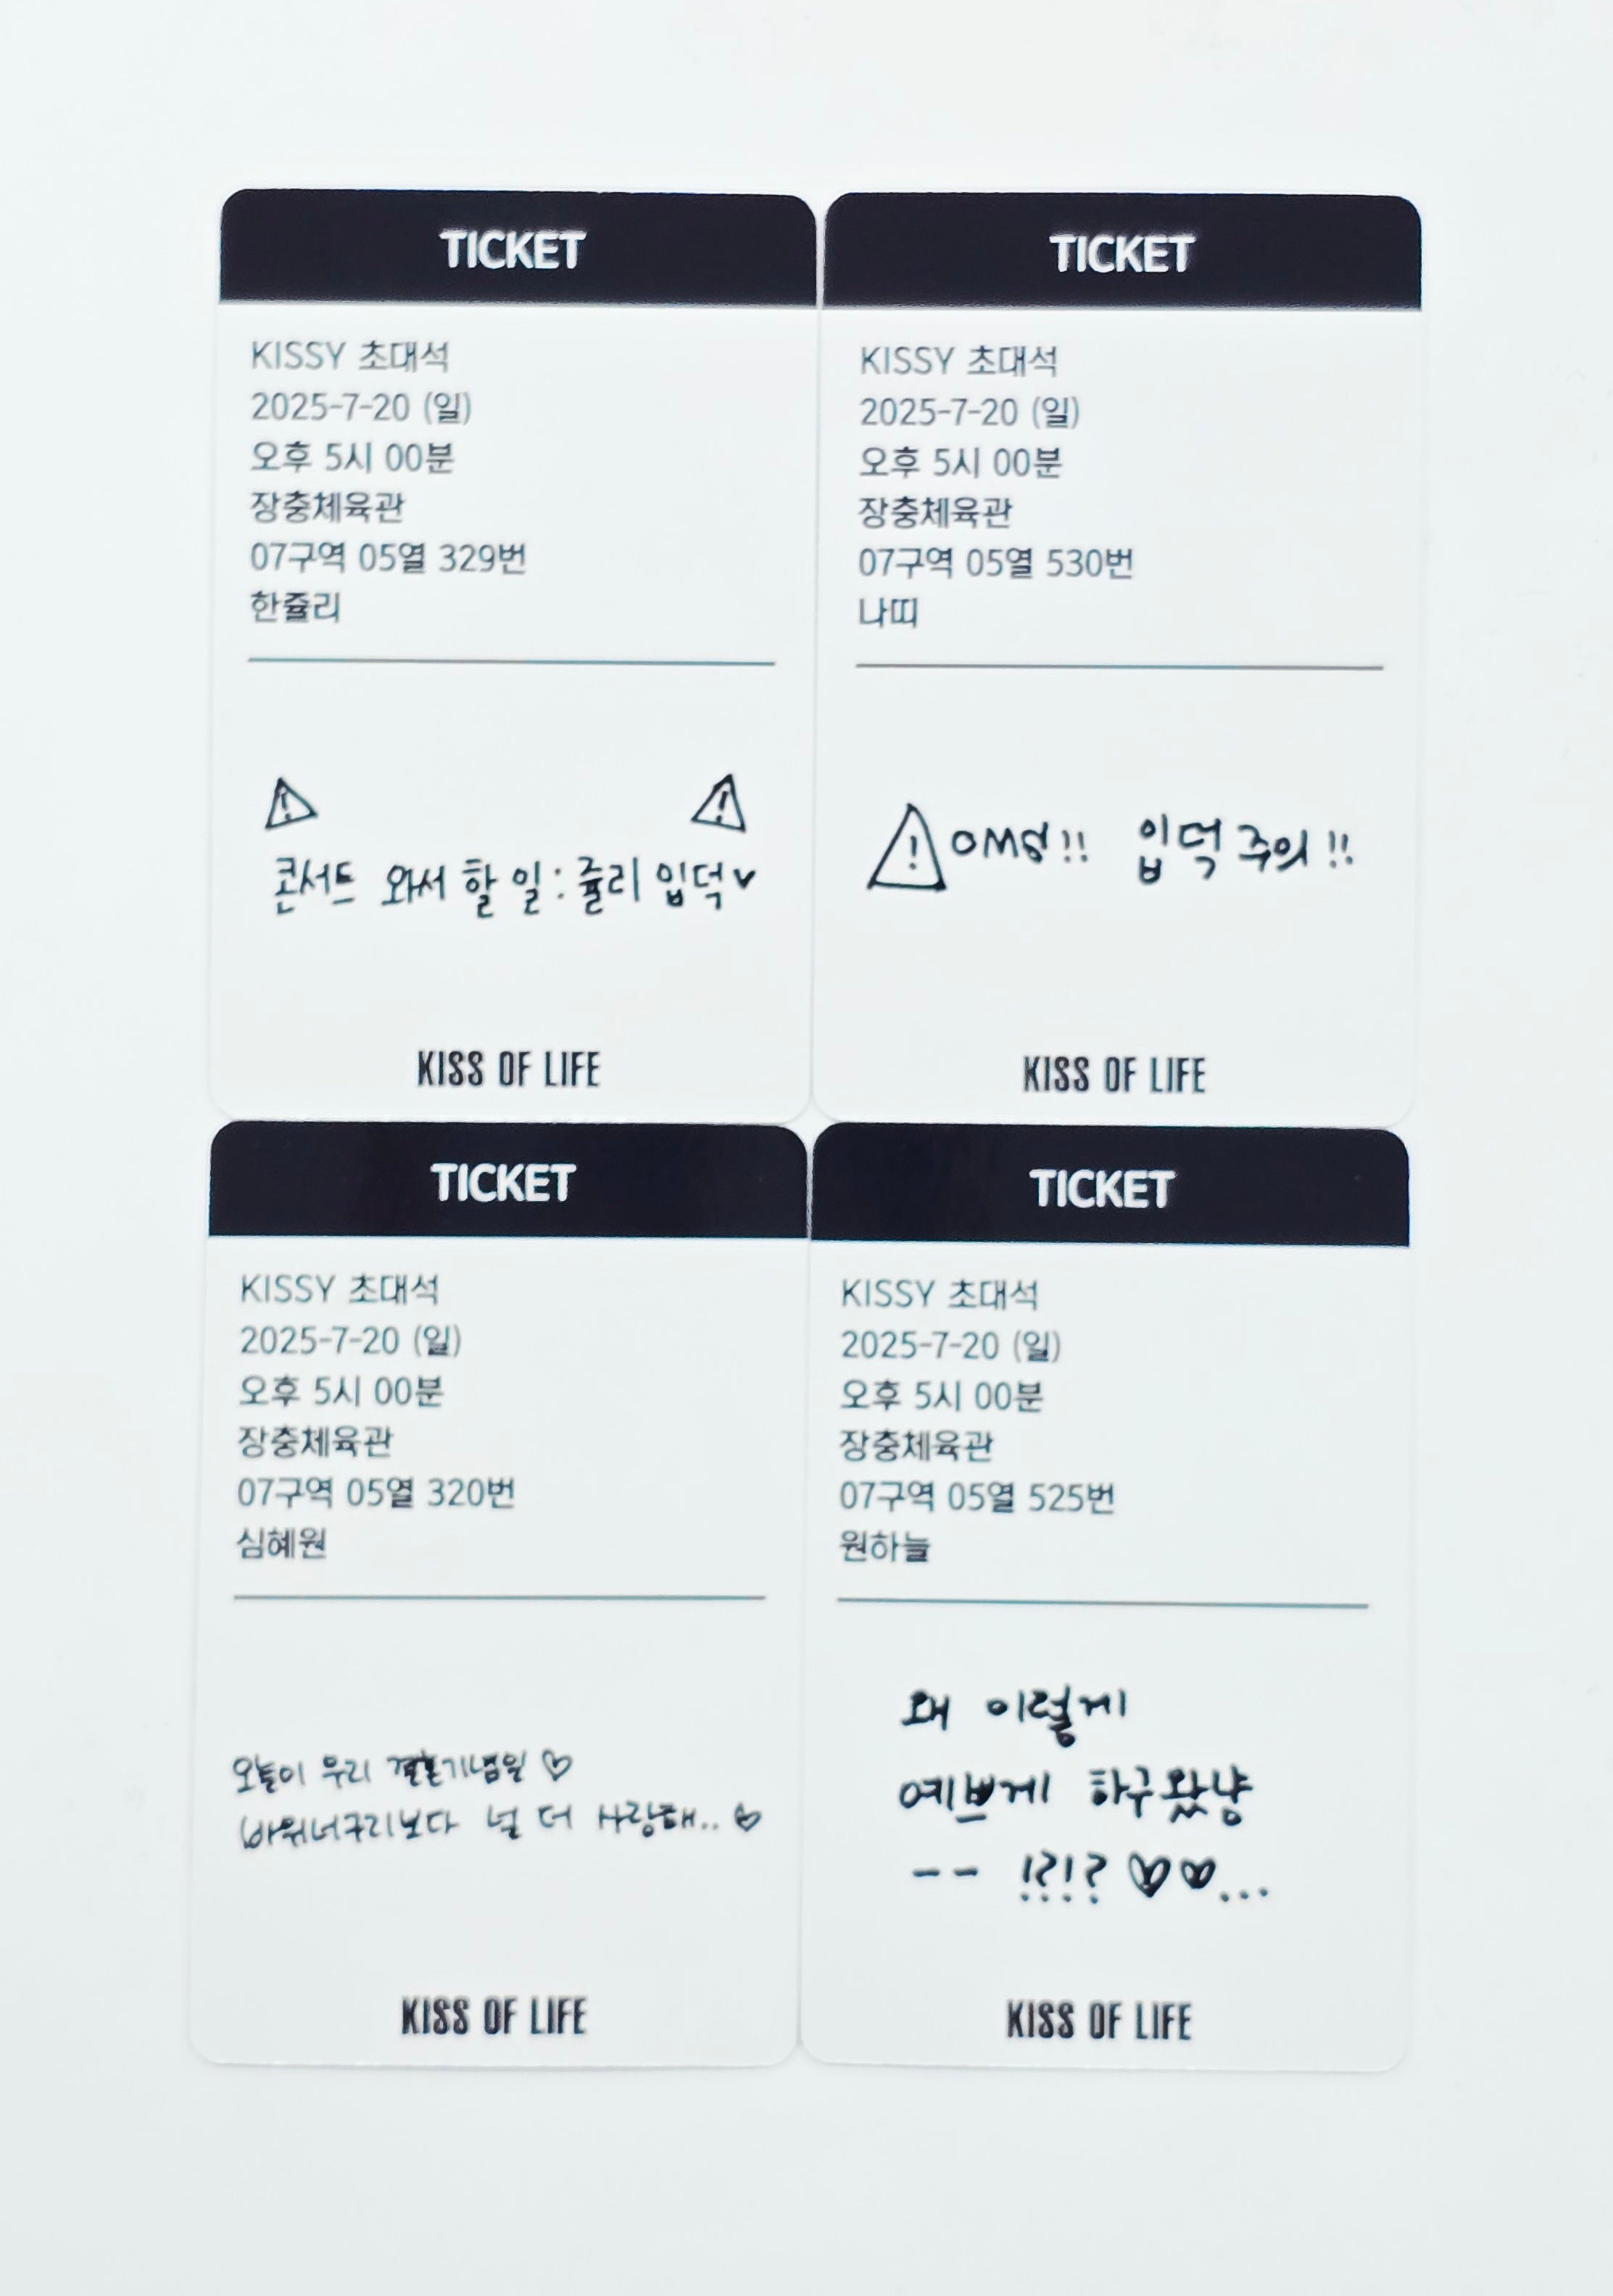 TICKET
KISSY 초대석
2025-7-20 (일)
오후 5시 00분
장충체육관
07구역 05열 329번
한쥴리
콘서트 와서 할 일 : 쥴리 입덕♥
KISS OF LIFE
TICKET
KISSY 초대석
2025-7-20 (일)
오후 5시 00분
장충체육관
07구역 05열 530번
나띠
OMG!! 입덕 주의!!
KISS OF LIFE
TICKET
KISSY 초대석
2025-7-20 (일)
오후 5시 00분
장충체육관
07구역 05열 320번
심혜원
오늘이 우리 결혼기념일 ♡
(바위너구리보다 널 더 사랑해.. ♡
KISS OF LIFE
TICKET
KISSY 초대석
2025-7-20 (일)
오후 5시 00분
장충체육관
07구역 05열 525번
원하늘
왜 이렇게
예쁘게 하구 왔냥
-- !?!? ♡♡...
KISS OF LIFE